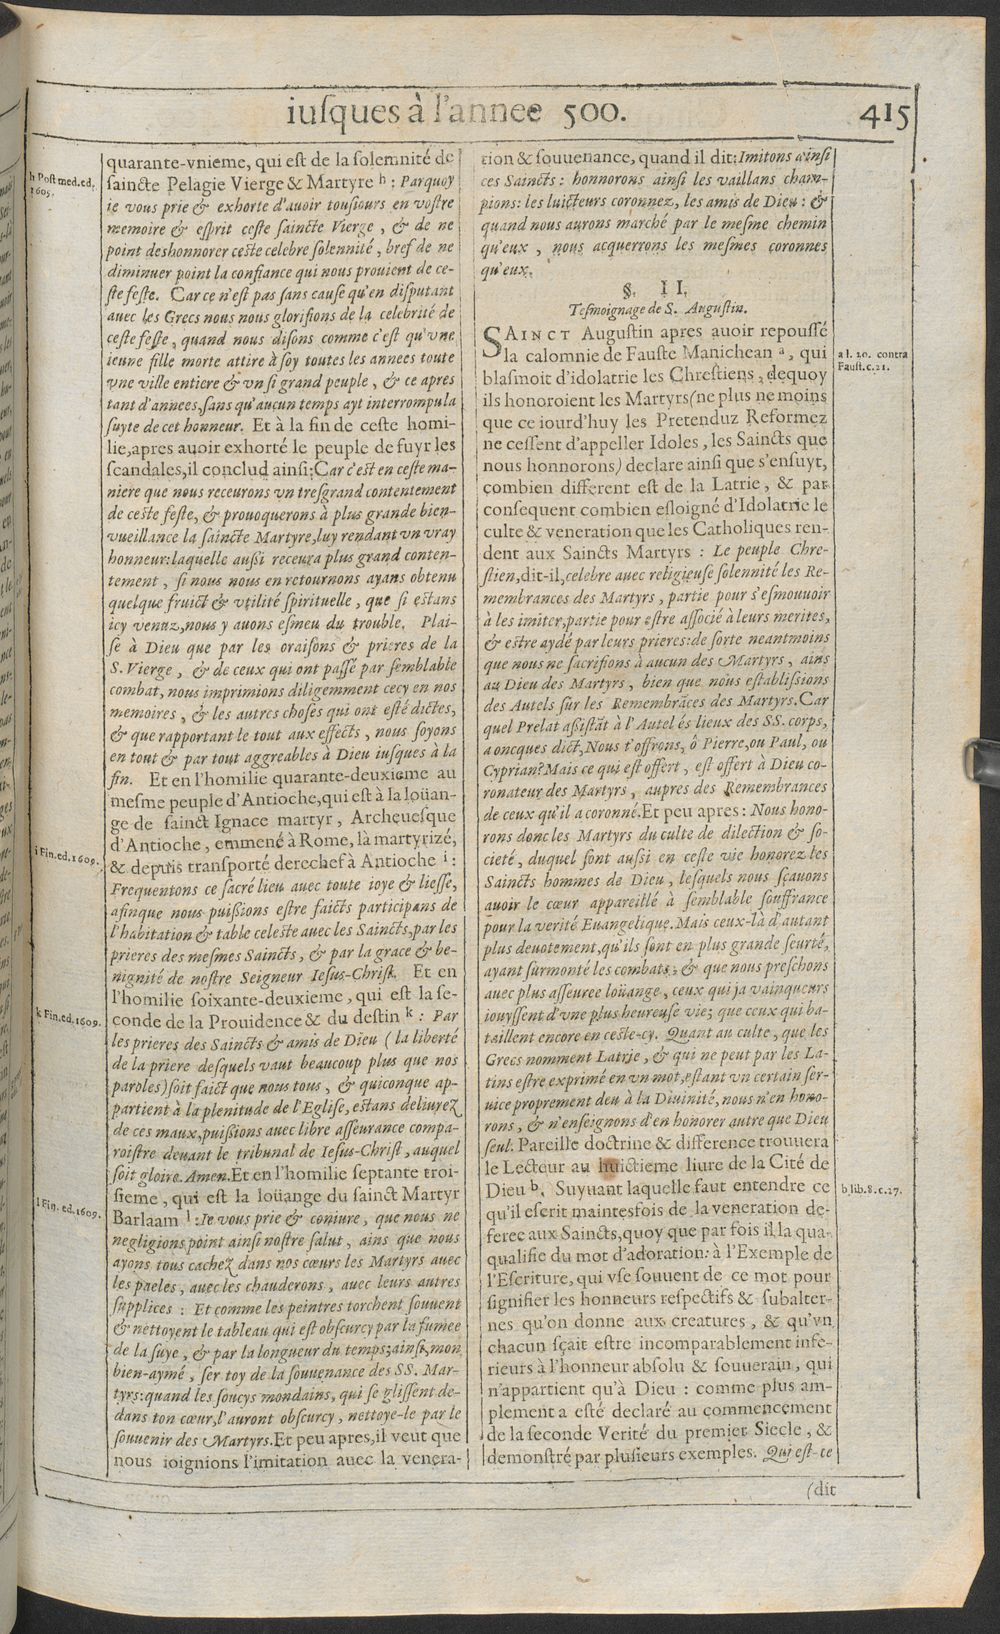 iuſques à l'annee 500. 415
quarante-vnieme, qui eſt de la ſolemnité de
ſaincte Pelagie Vierge & Martyre h : Parquoy
ie vous prie & exhorte d'auoir touſiours en voſtre
memoire & eſprit ceſte ſaincte Vierge, & de ne
point deshonnorer ceſte celebre ſolennité, bref de ne
diminuer point la confiance qui nous prouient de ce-
ſte feſte. Car ce n'eſt pas ſans cauſe qu'en diſputant
auec les Grecs nous nous glorifions de la celebrité de
ceſte feſte, quand nous diſons comme c'eſt qu'vne
ieune fille morte attire à ſoy toutes les annees toute
vne ville entiere & vn ſi grand peuple, & ce apres
tant d'annees, ſans qu'aucun temps ayt interrompu la
ſuyte de cet honneur. Et à la fin de ceſte homi-
lie, apres auoir exhorté le peuple de fuyr les
ſcandales, il conclud ainſi: Car c'eſt en ceſte ma-
niere que nous receurons vn treſgrand contentement
de ceſte feſte, & prouoquerons à plus grande bien-
vueillance la ſaincte Martyre, luy rendant vn vray
honneur: laquelle auſſi receura plus grand conten-
tement, ſi nous nous en retournons ayans obtenu
quelque fruict & vtilité ſpirituelle, que ſi eſtans
icy venuz, nous y auons eſmeu du trouble. Plai-
ſe à Dieu que par les oraiſons & prieres de la
S. Vierge, & de ceux qui ont paſſé par ſemblable
combat, nous imprimions diligemment cecy en nos
memoires, & les autres choſes qui ont eſté dictes,
& que rapportant le tout aux effects, nous ſoyons
en tout & par tout aggreables à Dieu iuſques à la
fin. Et en l'homilie quarante-deuxieme au
meſme peuple d'Antioche, qui eſt à la loüan-
ge de ſainct Ignace martyr, Archeueſque
d'Antioche, emmené à Rome, là martyrizé,
& depuis tranſporté derechef à Antioche i :
Frequentons ce ſacré lieu auec toute ioye & lieſſe,
afinque nous puiſſions eſtre faicts participans de
l'habitation & table celeſte auec les Saincts, par les
prieres des meſmes Saincts, & par la grace & be-
nignité de noſtre Seigneur Ieſus-Chriſt. Et en
l'homilie ſoixante-deuxieme, qui eſt la ſe-
conde de la Prouidence & du deſtin k : Par
les prieres des Saincts & amis de Dieu (la liberté
de la priere deſquels vaut beaucoup plus que nos
paroles) ſoit faict que nous tous, & quiconque ap-
partient à la plenitude de l'Egliſe, eſtans deliurez
de ces maux, puiſſions auec libre aſſeurance compa-
roiſtre deuant le tribunal de Ieſus-Chriſt, auquel
ſoit gloire. Amen. Et en l'homilie ſeptante troi-
ſieme, qui eſt la loüange du ſainct Martyr
Barlaam l : Ie vous prie & coniure, que nous ne
negligions point ainſi noſtre ſalut, ains que nous
ayons tous cachez dans nos cœurs les Martyrs auec
les paeles, auec les chauderons, auec leurs autres
ſupplices : Et comme les peintres torchent ſouuent
& nettoyent le tableau qui eſt obſcurcy par la fumee
de la ſuye, & par la longueur du temps; ainſi, mon
bien-aymé, ſer toy de la ſouuenance des SS. Mar-
tyrs: quand les ſoucys mondains, qui ſe gliſſent de-
dans ton cœur, l'auront obſcurcy, nettoye-le par le
ſouuenir des Martyrs. Et peu apres, il veut que
nous ioignions l'imitation auec la venera-
h Poſt med. ed.
1605.
i Fin. ed. 1609.
k Fin. ed. 1609.
l Fin. ed. 1609.
tion & ſouuenance, quand il dit: Imitons ainſi
ces Saincts: honnorons ainſi les vaillans cham-
pions: les luicteurs coronnez, les amis de Dieu: &
quand nous aurons marché par le meſme chemin
qu'eux, nous acquerrons les meſmes coronnes
qu'eux.
§. II.
Teſmoignage de S. Auguſtin.
SAINCT Auguſtin apres auoir repouſſé
la calomnie de Fauſte Manichean a, qui
blaſmoit d'idolatrie les Chreſtiens, dequoy
ils honoroient les Martyrs (ne plus ne moins
que ce iourd'huy les Pretenduz Reformez
ne ceſſent d'appeller Idoles, les Saincts que
nous honnorons) declare ainſi que s'enſuyt,
combien different eſt de la Latrie, & par
conſequent combien eſloigné d'Idolatrie le
culte & veneration que les Catholiques ren-
dent aux Saincts Martyrs : Le peuple Chre-
ſtien, dit-il, celebre auec religieuſe ſolennité les Re-
membrances des Martyrs, partie pour s'eſmouuoir
à les imiter, partie pour eſtre aſſocié à leurs merites,
& eſtre aydé par leurs prieres: de ſorte neantmoins
que nous ne ſacrifions à aucun des Martyrs, ains
au Dieu des Martyrs, bien que nous eſtabliſſions
des Autels ſur les Remembrãces des Martyrs. Car
quel Prelat aſſiſtãt à l'Autel és lieux des SS. corps,
a oncques dict, Nous t'offrons, ô Pierre, ou Paul, ou
Cyprian? Mais ce qui eſt offert, eſt offert à Dieu co-
ronateur des Martyrs, aupres des Remembrances
de ceux qu'il a coronné. Et peu apres: Nous hono-
rons donc les Martyrs du culte de dilection & ſo-
cieté, duquel ſont auſſi en ceſte vie honorez les
Saincts hommes de Dieu, leſquels nous ſçauons
auoir le cœur appareillé à ſemblable ſouffrance
pour la verité Euangelique. Mais ceux-là d'autant
plus deuotement, qu'ils ſont en plus grande ſeurté,
ayant ſurmonté les combats; & que nous preſchons
auec plus aſſeuree loüange, ceux qui ja vainqueurs
iouyſſent d'vne plus heureuſe vie; que ceux qui ba-
taillent encore en ceſte-cy. Quant au culte, que les
Grecs nomment Latrie, & qui ne peut par les La-
tins eſtre exprimé en vn mot, eſtant vn certain ſer-
uice proprement deu à la Diuinité, nous n'en hono-
rons, & n'enſeignons d'en honorer autre que Dieu
ſeul. Pareille doctrine & difference trouuera
le Lecteur au huictieme liure de la Cité de
Dieu b. Suyuant laquelle faut entendre ce
qu'il eſcrit maintesfois de la veneration de-
feree aux Saincts, quoy que par fois il la qua-
qualifie du mot d'adoration: à l'Exemple de
l'Eſcriture, qui vſe ſouuent de ce mot pour
ſignifier les honneurs reſpectifs & ſubalter-
nes qu'on donne aux creatures, & qu'vn
chacun ſçait eſtre incomparablement infe-
rieurs à l'honneur abſolu & ſouuerain, qui
n'appartient qu'à Dieu : comme plus am-
plement a eſté declaré au commencement
de la ſeconde Verité du premier Siecle, &
demonſtré par pluſieurs exemples. Qui eſt-ce
(dit
a l. 20. contra
Fauſt. c. 21.
b lib. 8. c. 27.